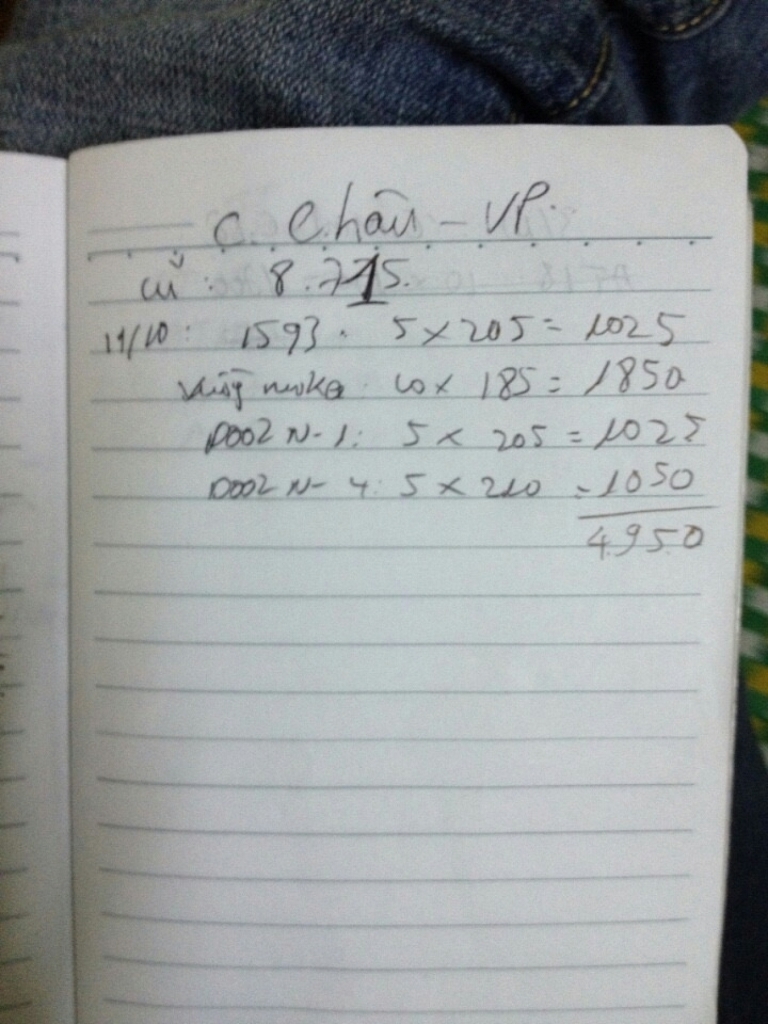 C. Châu - VP.
cũ : 8.715.
11/10 : 1593 . 5 x 205 = 1025
10 x 185 = 1850
D002 N-1 : 5 x 205 = 1025
D002 N-4 : 5 x 210 = 1050
4950